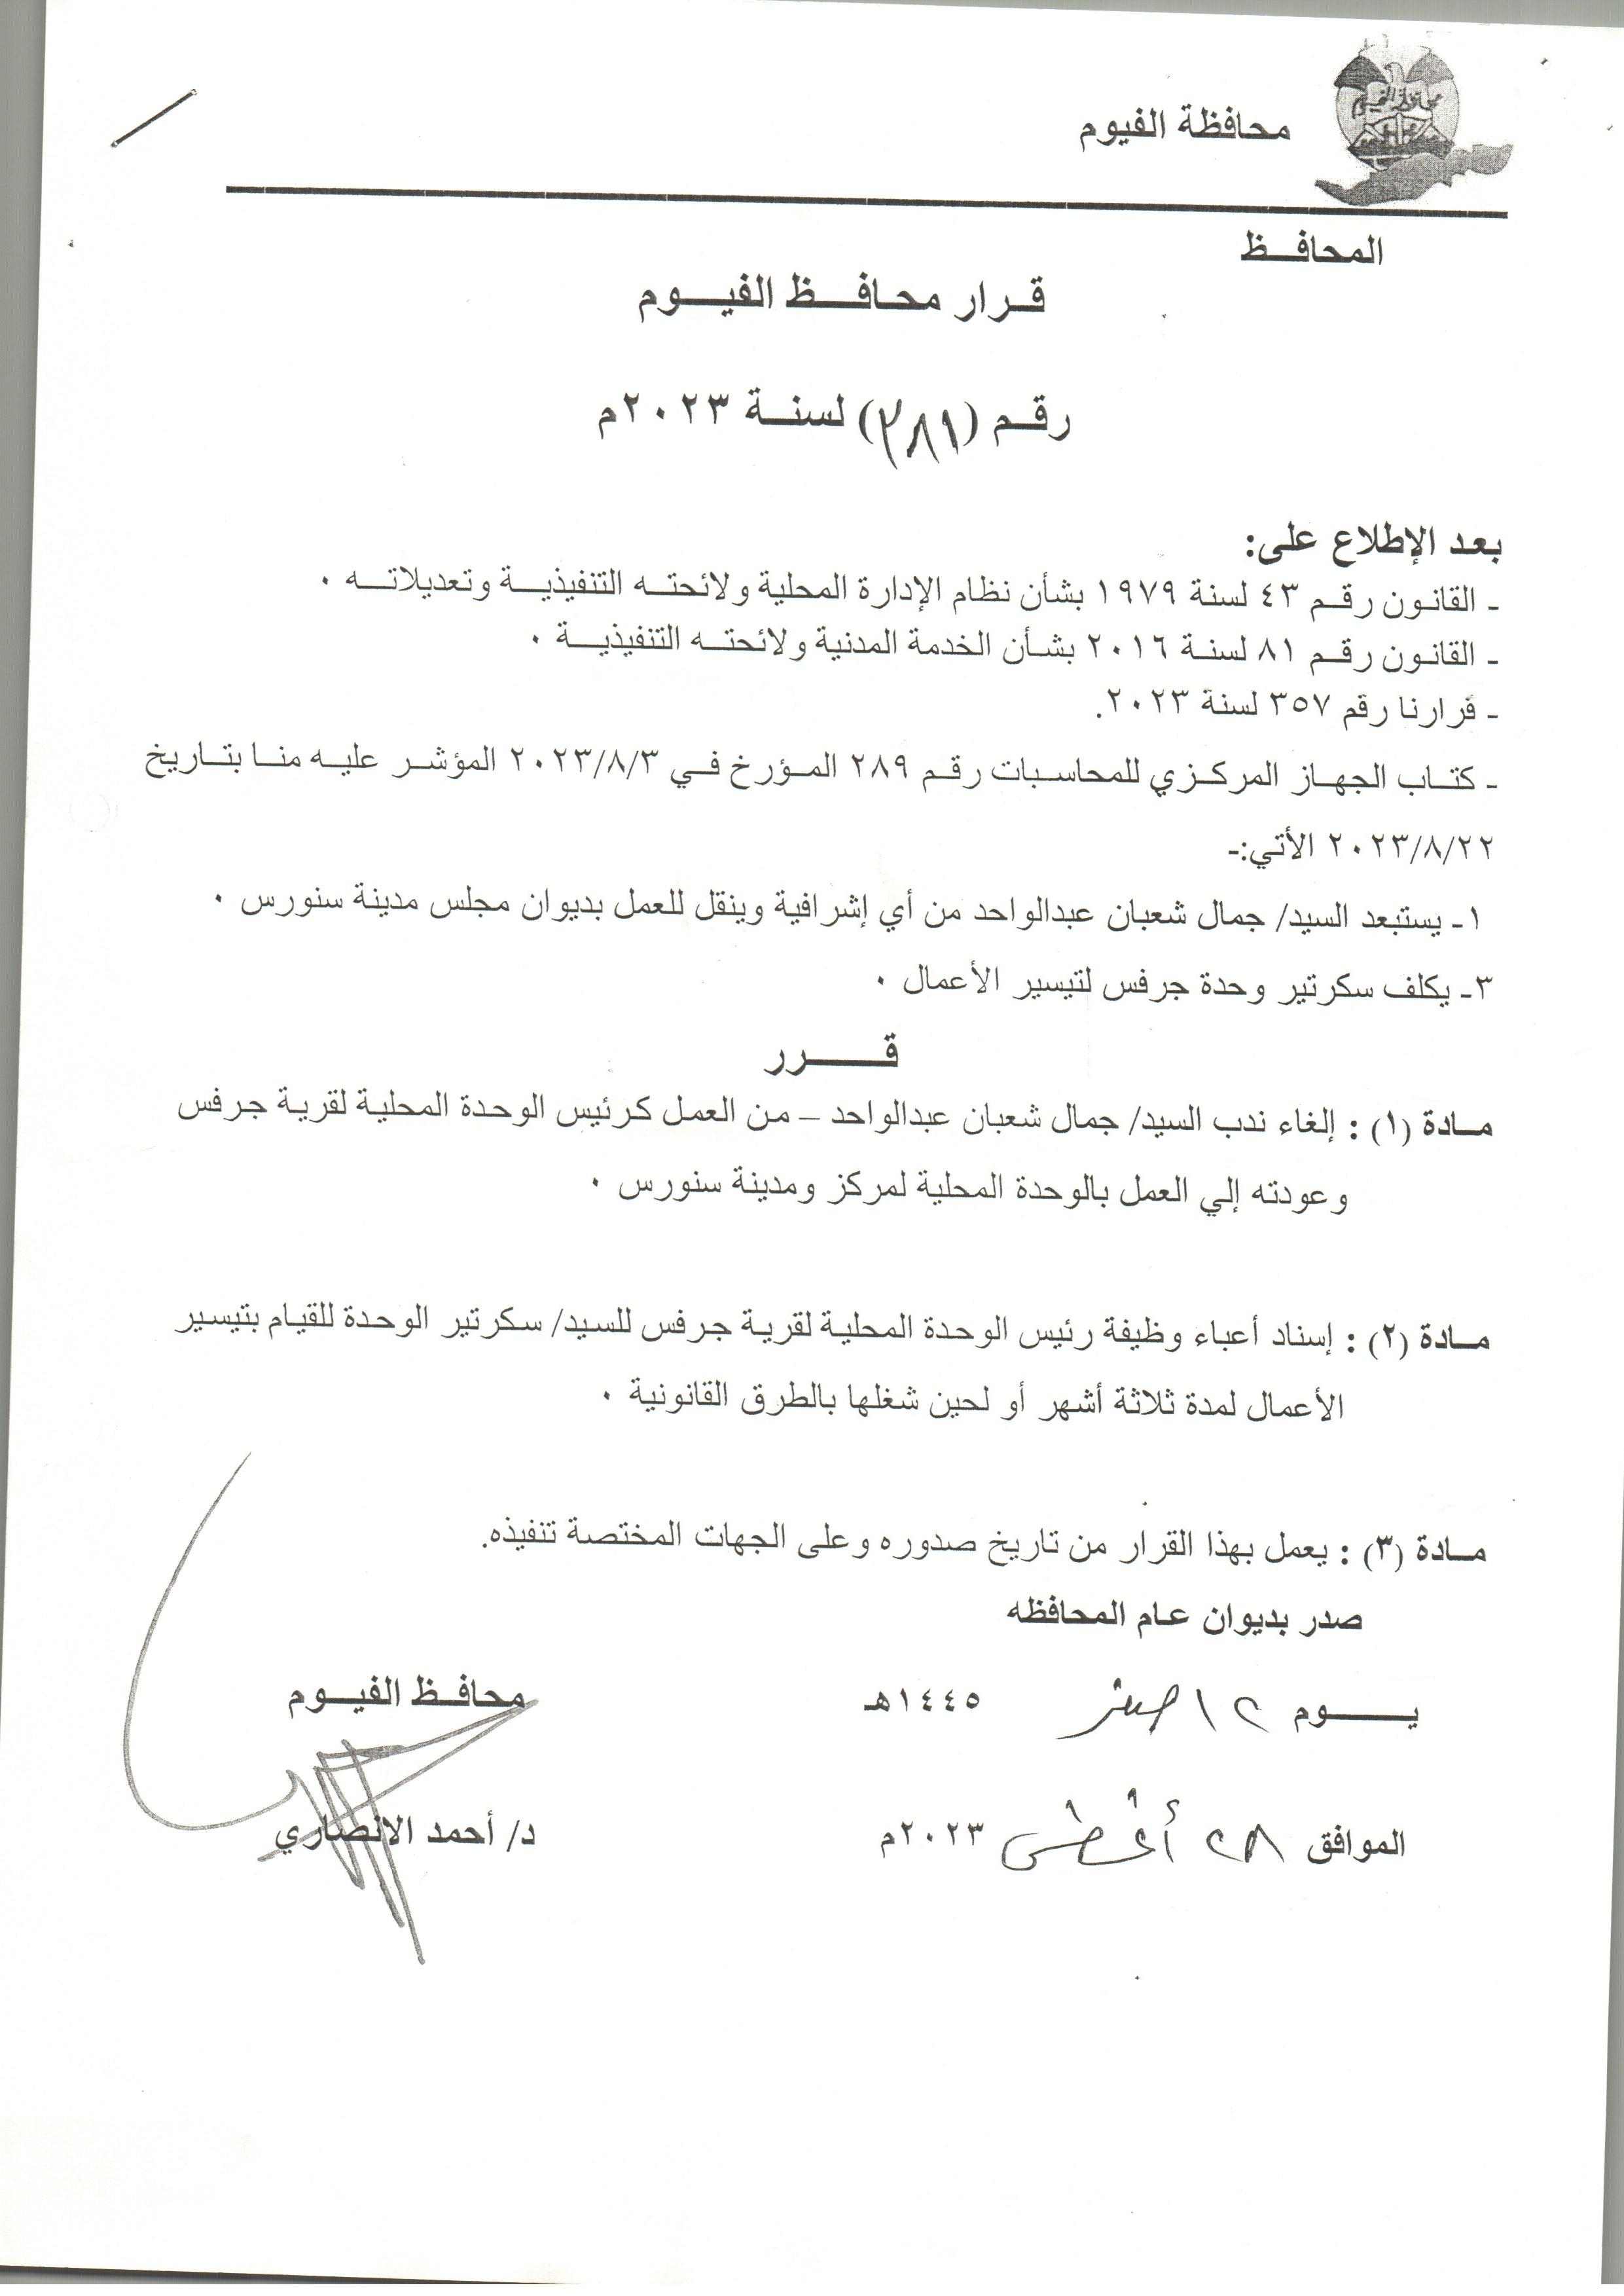 محافظة الفيوم
المحافظ
قرار محافظ الفيوم
رقم (٢٨١) لسنة ٢٠٢٣م
بعد الإطلاع على:
- القانون رقم ٤٣ لسنة ١٩٧٩ بشأن نظام الإدارة المحلية ولائحته التنفيذية وتعديلاته ٠
- القانون رقم ٨١ لسنة ٢٠١٦ بشأن الخدمة المدنية ولائحته التنفيذية ٠
- قرارنا رقم ٣٥٧ لسنة ٢٠٢٣.
- كتاب الجهاز المركزي للمحاسبات رقم ٢٨٩ المؤرخ في ٢٠٢٣/٨/٣ المؤشر عليه منا بتاريخ
٢٠٢٣/٨/٢٢ الأتي:-
١- يستبعد السيد/ جمال شعبان عبدالواحد من أي إشرافية وينقل للعمل بديوان مجلس مدينة سنورس ٠
٣- يكلف سكرتير وحدة جرفس لتيسير الأعمال ٠
قرر
مادة (١) : إلغاء ندب السيد/ جمال شعبان عبدالواحد – من العمل كرئيس الوحدة المحلية لقرية جرفس
وعودته إلي العمل بالوحدة المحلية لمركز ومدينة سنورس ٠
مادة (٢) : إسناد أعباء وظيفة رئيس الوحدة المحلية لقرية جرفس للسيد/ سكرتير الوحدة للقيام بتيسير
الأعمال لمدة ثلاثة أشهر أو لحين شغلها بالطرق القانونية ٠
مادة (٣) : يعمل بهذا القرار من تاريخ صدوره وعلى الجهات المختصة تنفيذه.
صدر بديوان عام المحافظه
يوم ١٢ صفر ١٤٤٥هـ
محافظ الفيوم
الموافق ٢٨ أغسطس ٢٠٢٣م
د/ أحمد الانصاري